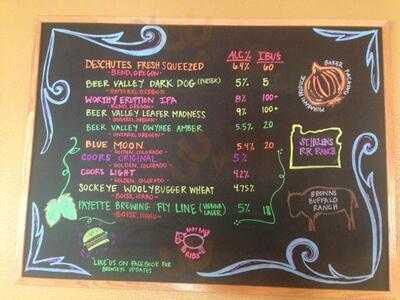 ALC% IBUS
DESCHUTES FRESH SQUEEZED 6.4% 60
-BEND, OREGON-
BEER VALLEY DARK DOG (PORTER) 5% 5
-ONTARIO, OREGON-
WORTHY ERUPTION IPA 8% 100+
-BEND, OREGON-
BEER VALLEY LEAFER MADNESS 9% 100+
-ONTARIO, OREGON-
BEER VALLEY OWYHEE AMBER 5.5% 20
-ONTARIO, OREGON-
BLUE MOON 5.4% 20
-GOLDEN, COLORADO-
COORS ORIGINAL 5%
-GOLDEN, COLORADO-
COORS LIGHT 4.2%
-GOLDEN, COLORADO-
SOCKEYE WOOLYBUGGER WHEAT 4.75%
-BOISE, IDAHO-
PAYETTE BREWING FLY LINE (VIENNA LAGER) 5% 18
-BOISE, IDAHO-
BAKER
BROWNS
BUFFALO
RANCH
BABY BACK
RIBS
LIKE US ON FACEBOOK FOR
UPDATES